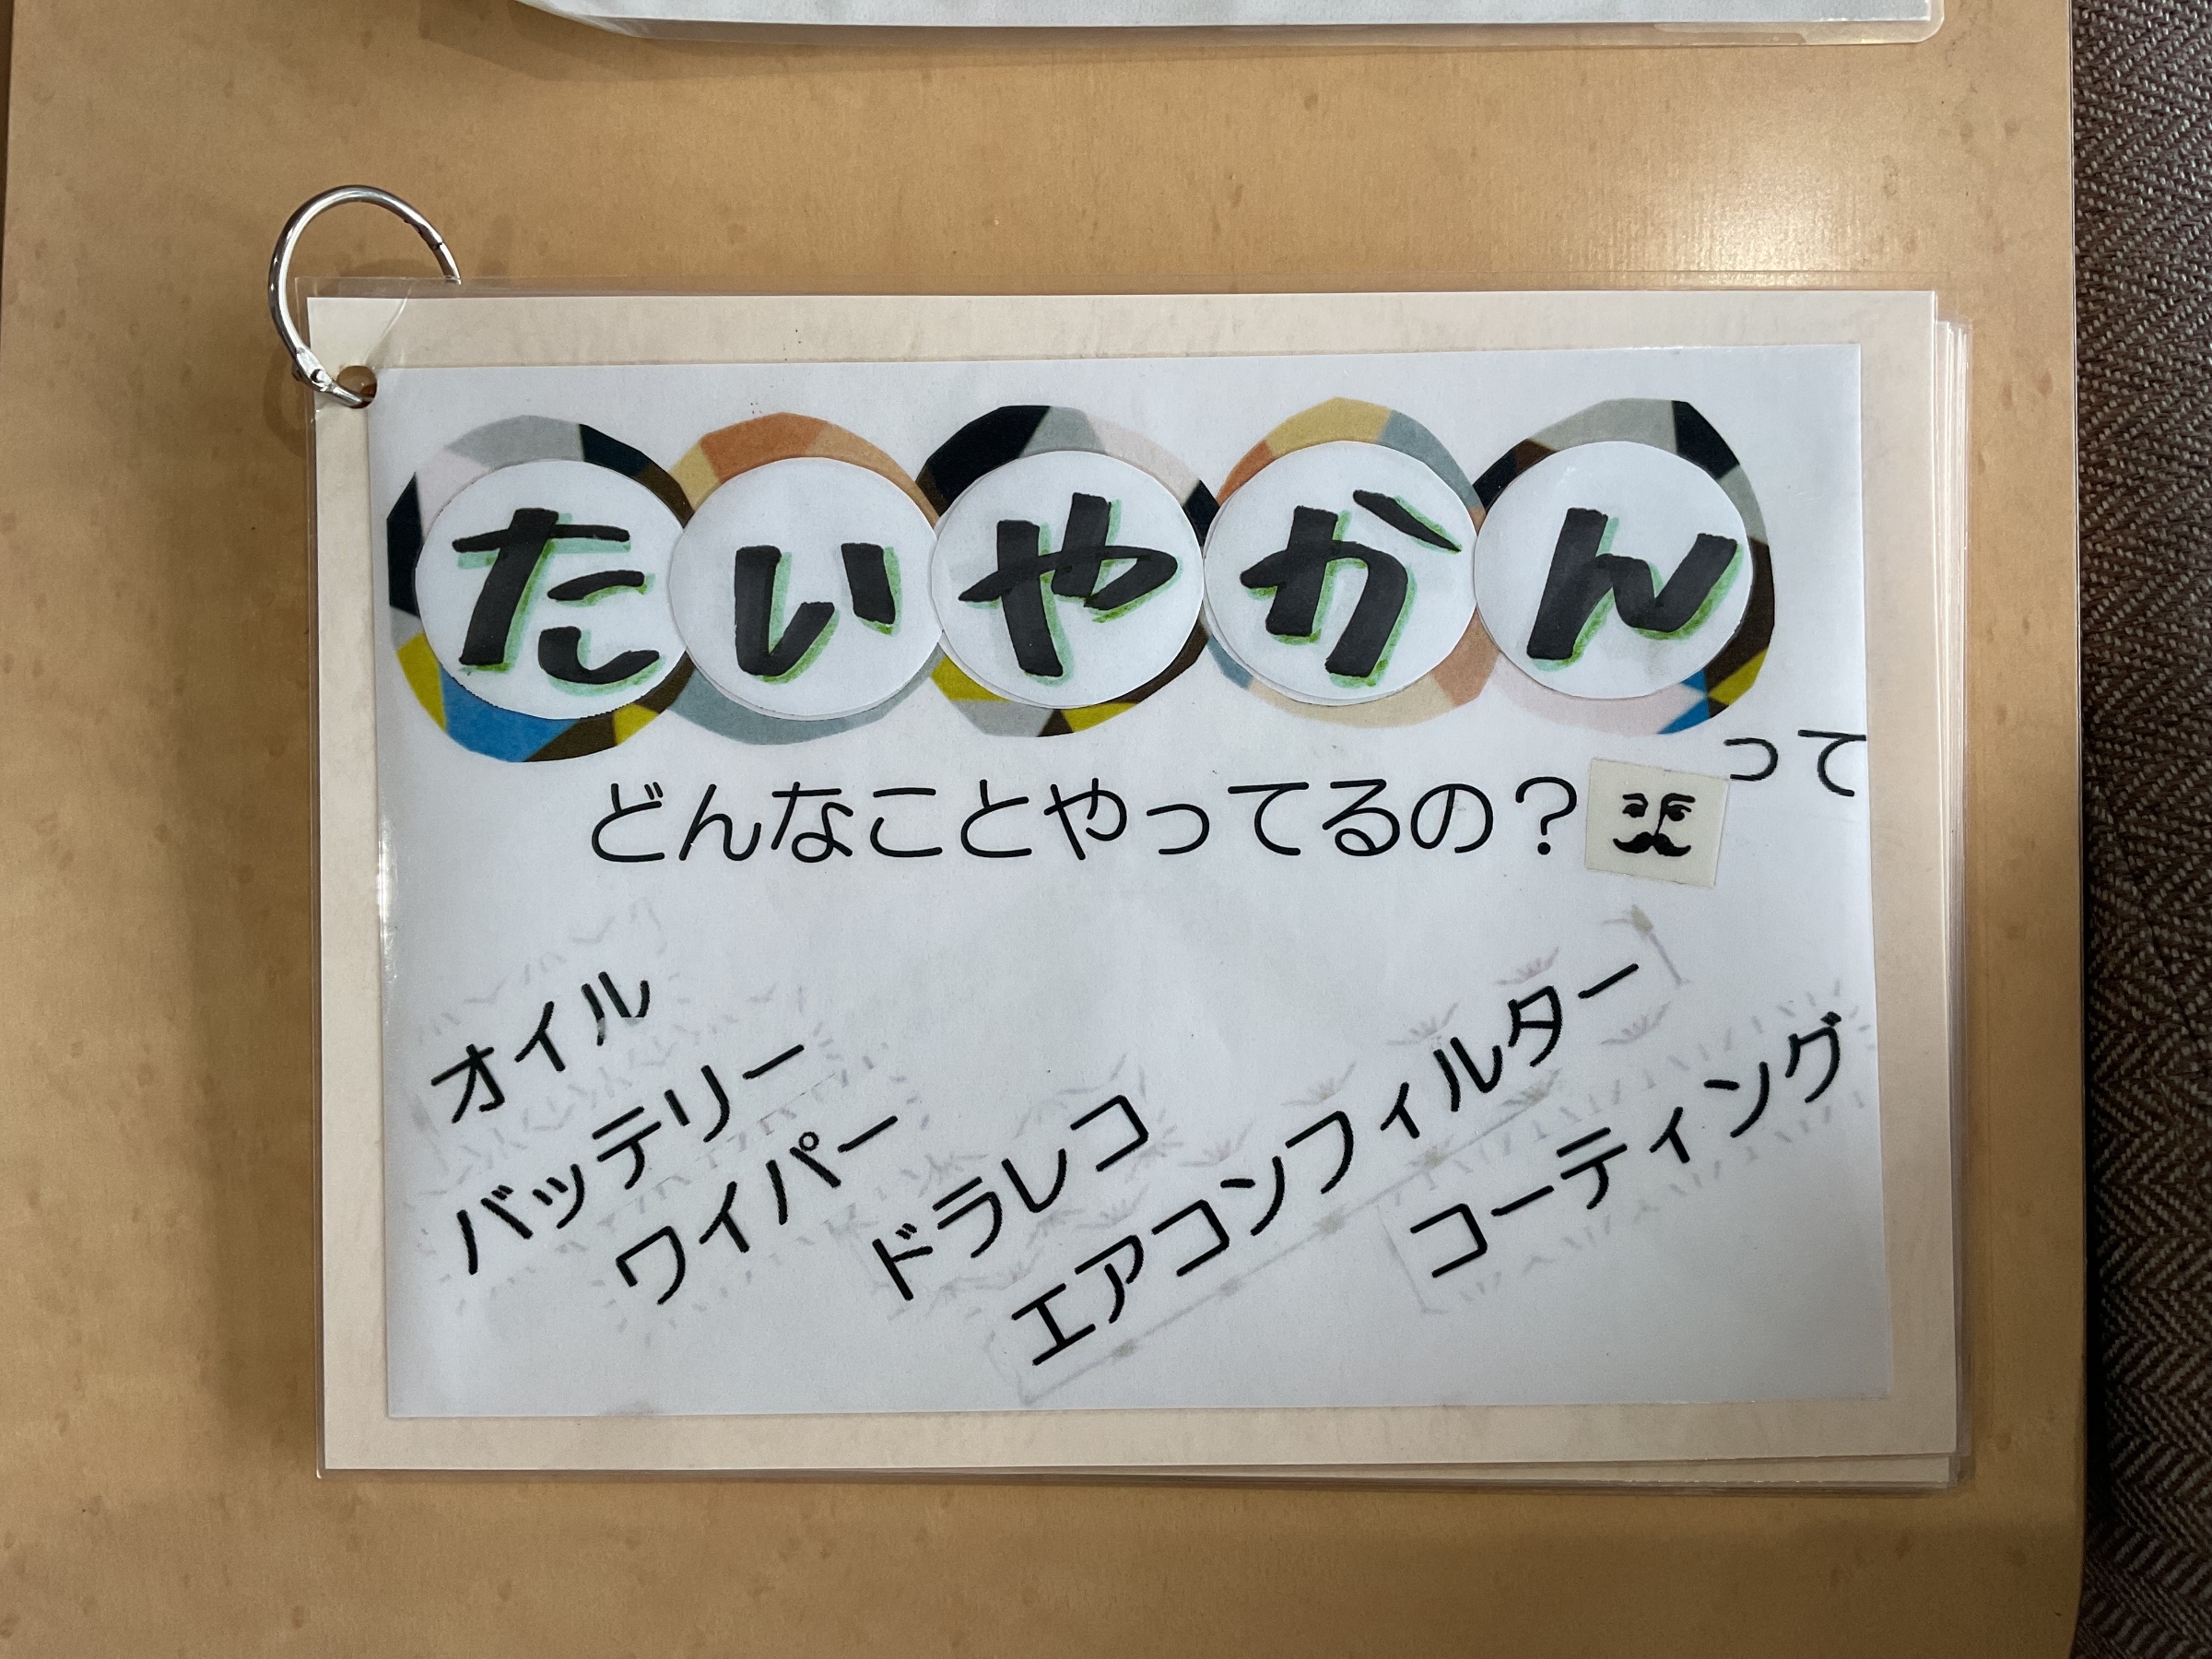 たいやかん
って
どんなことやってるの？
オイル
バッテリー
ワイパー
ドラレコ
エアコンフィルター
コーティング